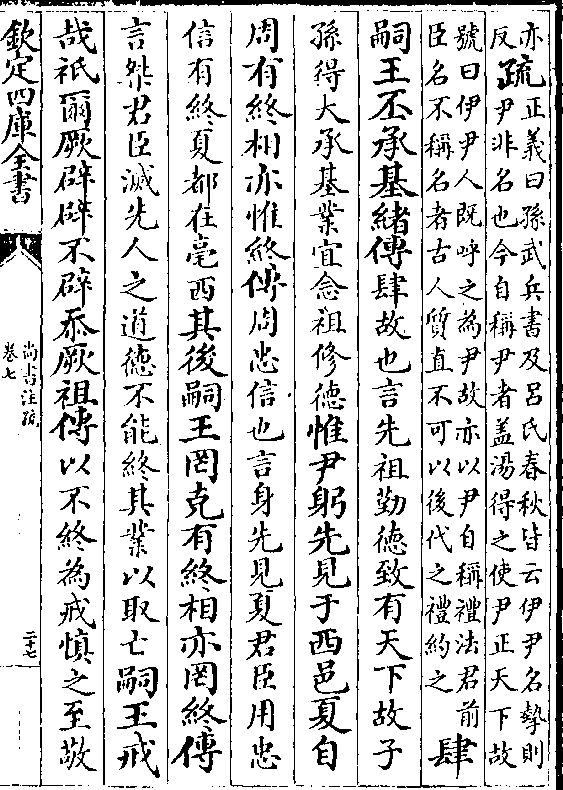 亦正義曰孫武兵書及呂氏春秋皆云伊尹名摯則
反疏尹非名也今自稱尹者蓋湯得之使尹正天下故
號曰伊尹人既呼之為尹故亦以尹自稱禮法君前
臣名不稱名者古人質直不可以後代之禮約之肆
嗣王丕承基緒傳肆故也言先祖勤德致有天下故子
孫得大承基業宜念祖修德惟尹躬先見于西邑夏自
周有終相亦惟終傳周忠信也言身先見夏君臣用忠
信有終夏都在亳西其後嗣王罔克有終相亦罔終傳
言桀君臣滅先人之道德不能終其業以取亡嗣王戒
哉祇爾厥辟辟不辟忝厥祖傳以不終為戒慎之至敬
欽定四庫全書
尚書注疏
卷七
二十七